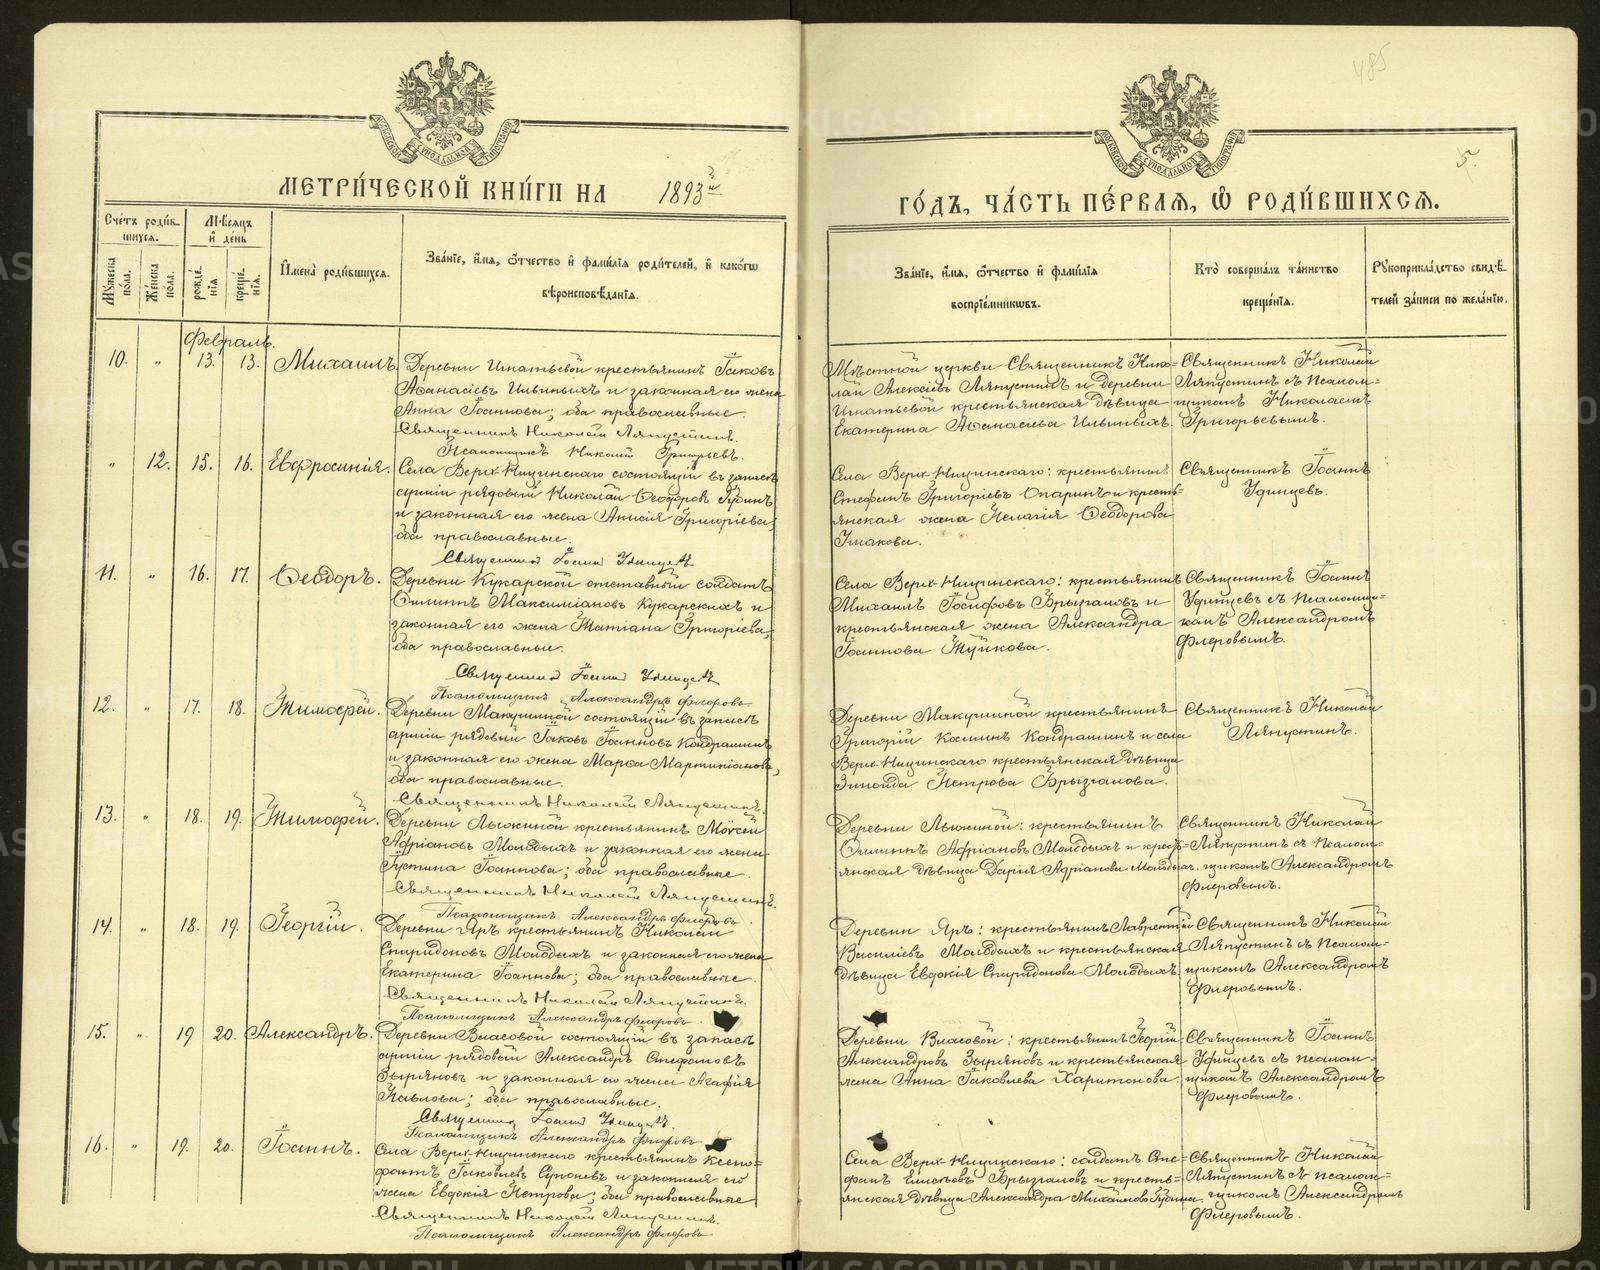 485
5.
МЕТРИ́ЧЕСКОЙ КНИ́ГИ НА 1893й
ГО́ДЪ, ЧА́СТЬ ПЕ́РВАѦ, Ѡ҆ РОДИ́ВШИХСѦ.
Сче́тъ роди́в-
шихсѧ.
Мѣ́сѧцъ
и҆ де́нь
Му́жеска по́ла.
Же́нска по́ла.
рожде́-
нїѧ
креще́-
нїѧ.
И҆мена̀ роди́вшихсѧ.
Зва́нїе, и҆́мѧ, ѻ҆́тчество и҆ фами́лїѧ роди́телей, и҆ како́гѡ
вѣроисповѣ́данїѧ.
Зва́нїе, и҆́мѧ, ѻ҆́тчество и҆ фами́лїѧ
воспрїе́мникѡвъ.
Кто̀ соверша́лъ та́инство
креще́нїѧ.
Рꙋкоприкла́дство свидѣ́-
телей за́писи по жела́нїю.
Февраль.
10. „ 13. 13. Михаилъ.
Деревни Игнатьевой крестьянинъ Іаковъ
Аѳанасіевъ Ильиныхъ и законная его жена
Анна Іоаннова; оба православные.
Священникъ Николай Ляпустинъ.
Псаломщикъ Николай Григорьевъ.
Мѣстной церкви Священникъ Нико-
лай Алексіевъ Ляпустинъ и деревни
Игнатьевой крестьянская дѣвица
Екатерина Аѳанасіева Ильиныхъ.
Священникъ Николай
Ляпустинъ съ Псалом-
щикомъ Николаемъ
Григорьевымъ.
„ 12. 15. 16. Евфросинія.
Села Верх-Ницинскаго состоящій въ запасѣ
арміи рядовый Николай Ѳеодоровъ Губинъ
и законная его жена Анисія Григоріева,
оба православные.
Священникъ Іоаннъ Удинцевъ
Села Верх-Ницинскаго: крестьянинъ
Стефанъ Григоріевъ Опаринъ и кресть-
янская жена Пелагія Ѳеодорова
Ушакова.
Священникъ Іоаннъ
Удинцевъ.
11. „ 16. 17. Ѳеодоръ.
Деревни Кукарской отставный солдатъ
Филиппъ Максиміановъ Кукарскихъ и
законная его жена Татіана Григоріева,
оба православные.
Священникъ Іоаннъ Удинцевъ
Псаломщикъ Александръ Флеровъ.
Села Верх-Ницинскаго: крестьянинъ
Михаилъ Іосифовъ Брызгаловъ и
крестьянская жена Александра
Іоаннова Туйкова.
Священникъ Іоаннъ
Удинцевъ съ Псаломщи-
комъ Александромъ
Флеровымъ.
12. „ 17. 18. Тимоѳей.
Деревни Макушиной состоящій въ запасѣ
арміи рядовый Іаковъ Іоанновъ Кондрашинъ
и законная его жена Марѳа Мартиніанова,
оба православные.
Священникъ Николай Ляпустинъ.
Деревни Макушиной крестьянинъ
Григорій Космин Кондрашинъ и села
Верх-Ницинскаго крестьянская дѣвица
Зинаида Петрова Брызгалова.
Священникъ Николай
Ляпустинъ.
13. „ 18. 19. Тимоѳей.
Деревни Лыжиной крестьянинъ Моѵсей
Адріановъ Молодыхъ и законная его жена
Іустина Іоаннова; оба православные.
Священникъ Николай Ляпустинъ.
Псаломщикъ Александръ Флеровъ.
Деревни Лыжиной: крестьянинъ
Филиппъ Адріановъ Молодыхъ и кресть-
янская дѣвица Дарія Адріанова Молодыхъ.
Священникъ Николай
Ляпустинъ съ Псалом-
щикомъ Александромъ
Флеровымъ.
14. „ 18. 19. Георгій.
Деревни Яръ крестьянинъ Николай
Спиридоновъ Молодыхъ и законная его жена
Екатерина Іоаннова; оба православные.
Священникъ Николай Ляпустинъ.
Псаломщикъ Александръ Флеровъ.
Деревни Яръ: крестьянинъ Лаврентій
Василіевъ Молодыхъ и крестьянская
дѣвица Евдокія Спиридонова Молодыхъ.
Священникъ Николай
Ляпустинъ съ Псалом-
щикомъ Александромъ
Флеровымъ.
15. „ 19 20. Александръ.
Деревни Власовой состоящій въ запасѣ
арміи рядовый Александръ Стефановъ
Зыряновъ и законная его жена Агафія
Павлова; оба православные.
Священникъ Іоаннъ Удинцевъ.
Псаломщикъ Александръ Флеровъ
Деревни Власовой: крестьянинъ Георгій
Александровъ Зыряновъ и крестьянская
жена Анна Іаковлева Харитонова.
Священникъ Іоаннъ
Удинцевъ съ псалом-
щикомъ Александромъ
Флеровымъ.
16. „ 19. 20. Іоаннъ.
Села Верх-Ницинскаго крестьянинъ Ксено-
фонтъ Іаковлевъ Супоневъ и законная его
жена Евдокія Петрова; оба православные
Священникъ Николай Ляпустинъ.
Псаломщикъ Александръ Флеровъ
Села Верх-Ницинскаго: солдатъ Сте-
фанъ Елисѣевъ Брызгаловъ и кресть-
янская дѣвица Александра Михайлова Губина.
Священникъ Николай
Ляпустинъ съ псалом-
щикомъ Александромъ
Флеровымъ.
METRIKI.GASO-URAL.RU